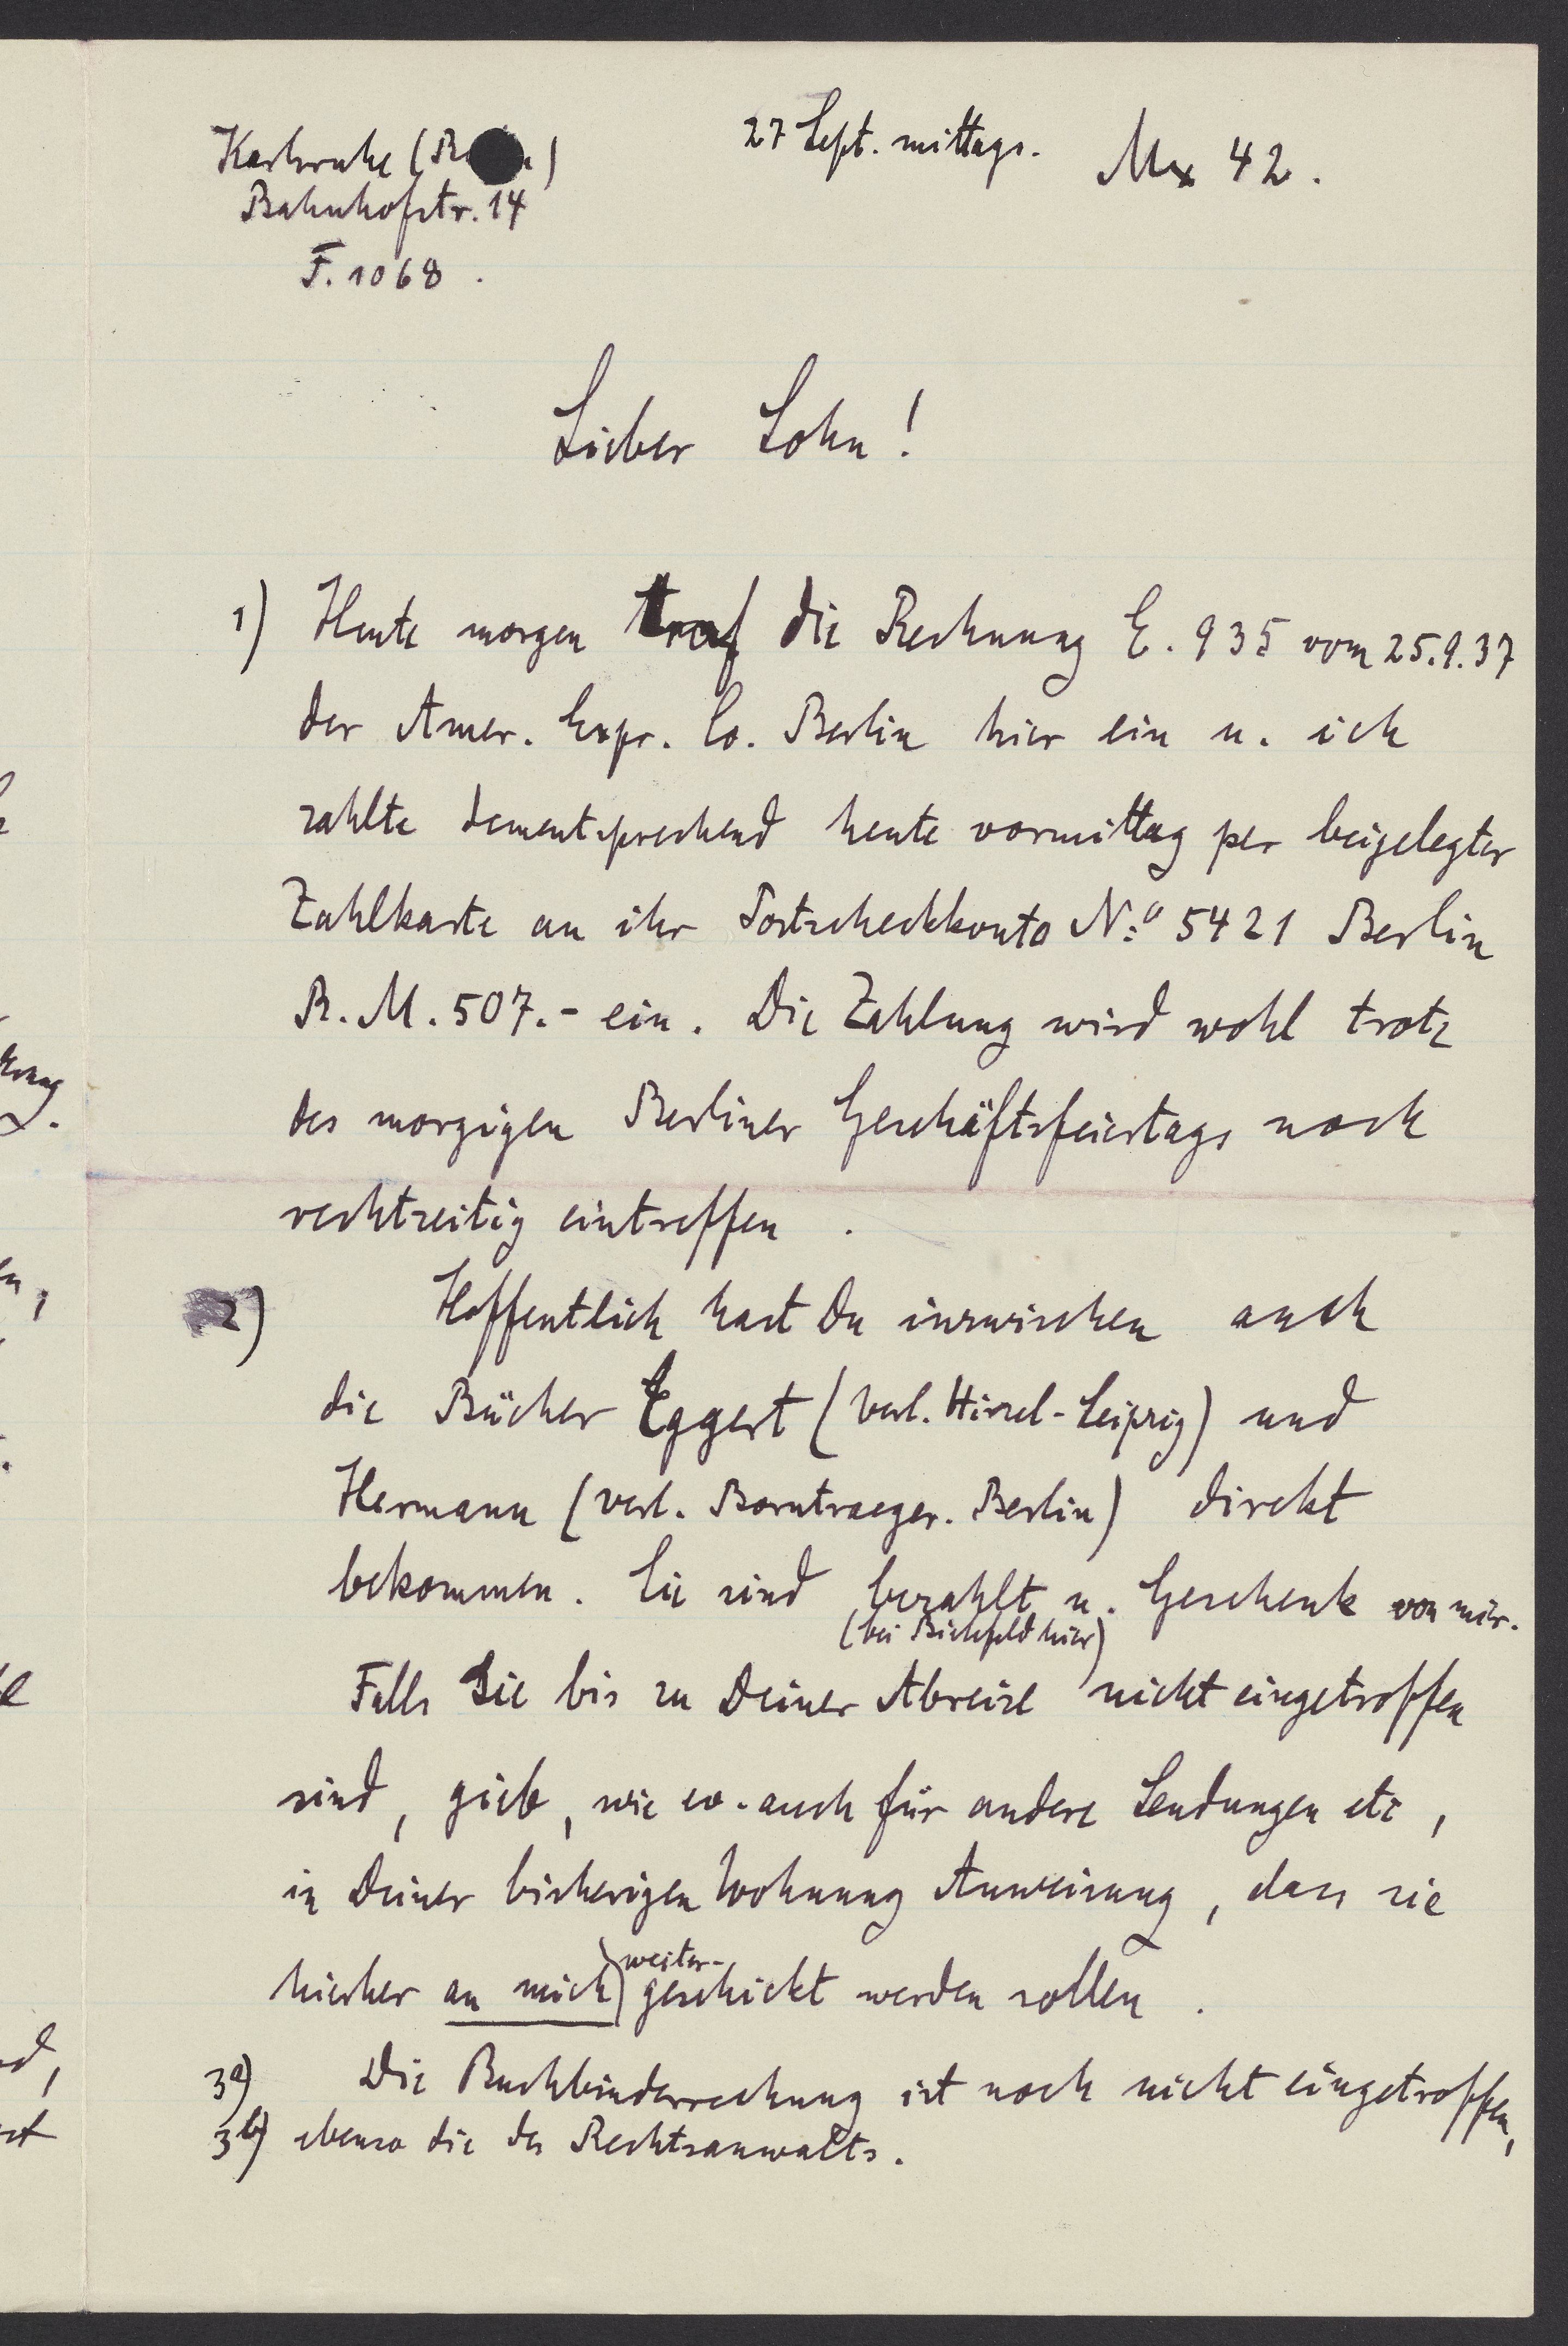 Karlsruhe (B
27 Sept. mittags. Mx 42.
Bahnhofstr. 14
F. 1068.
Lieber Sohn!
1) Heute morgen traf die Rechnung E. 935 vom 25.9.37
der Amer. Expr. Co. Berlin hier ein u. ich
zahlte dementsprechend heute vormittag per beigelegter
Zahlkarte an ihr Postscheckkonto No 5421 Berlin
R.M. 507.- ein. Die Zahlung wird wohl trotz
des morgigen Berliner Geschäftsfeiertags noch
rechtzeitig eintreffen.
2) Hoffentlich hast Du inzwischen auch
die Bücher Eggert (Verl. Hirzel-Leipzig) und
Hermann (Verl. Borntraeger. Berlin) direkt
bekommen. Sie sind bezahlt u. Geschenk von mir.
(bei Bielefeld hier)
Falls Sie bis zu Deiner Abreise nicht eingetroffen
sind, gieb, wie ev. auch für andere Sendungen etc,
in Deiner bisherigen Wohnung Anweisung, dass sie
hierher an mich weiter-geschickt werden sollen.
3a) Die Buchbinderrechnung ist noch nicht eingetroffen,
3b) ebenso die des Rechtsanwalts.